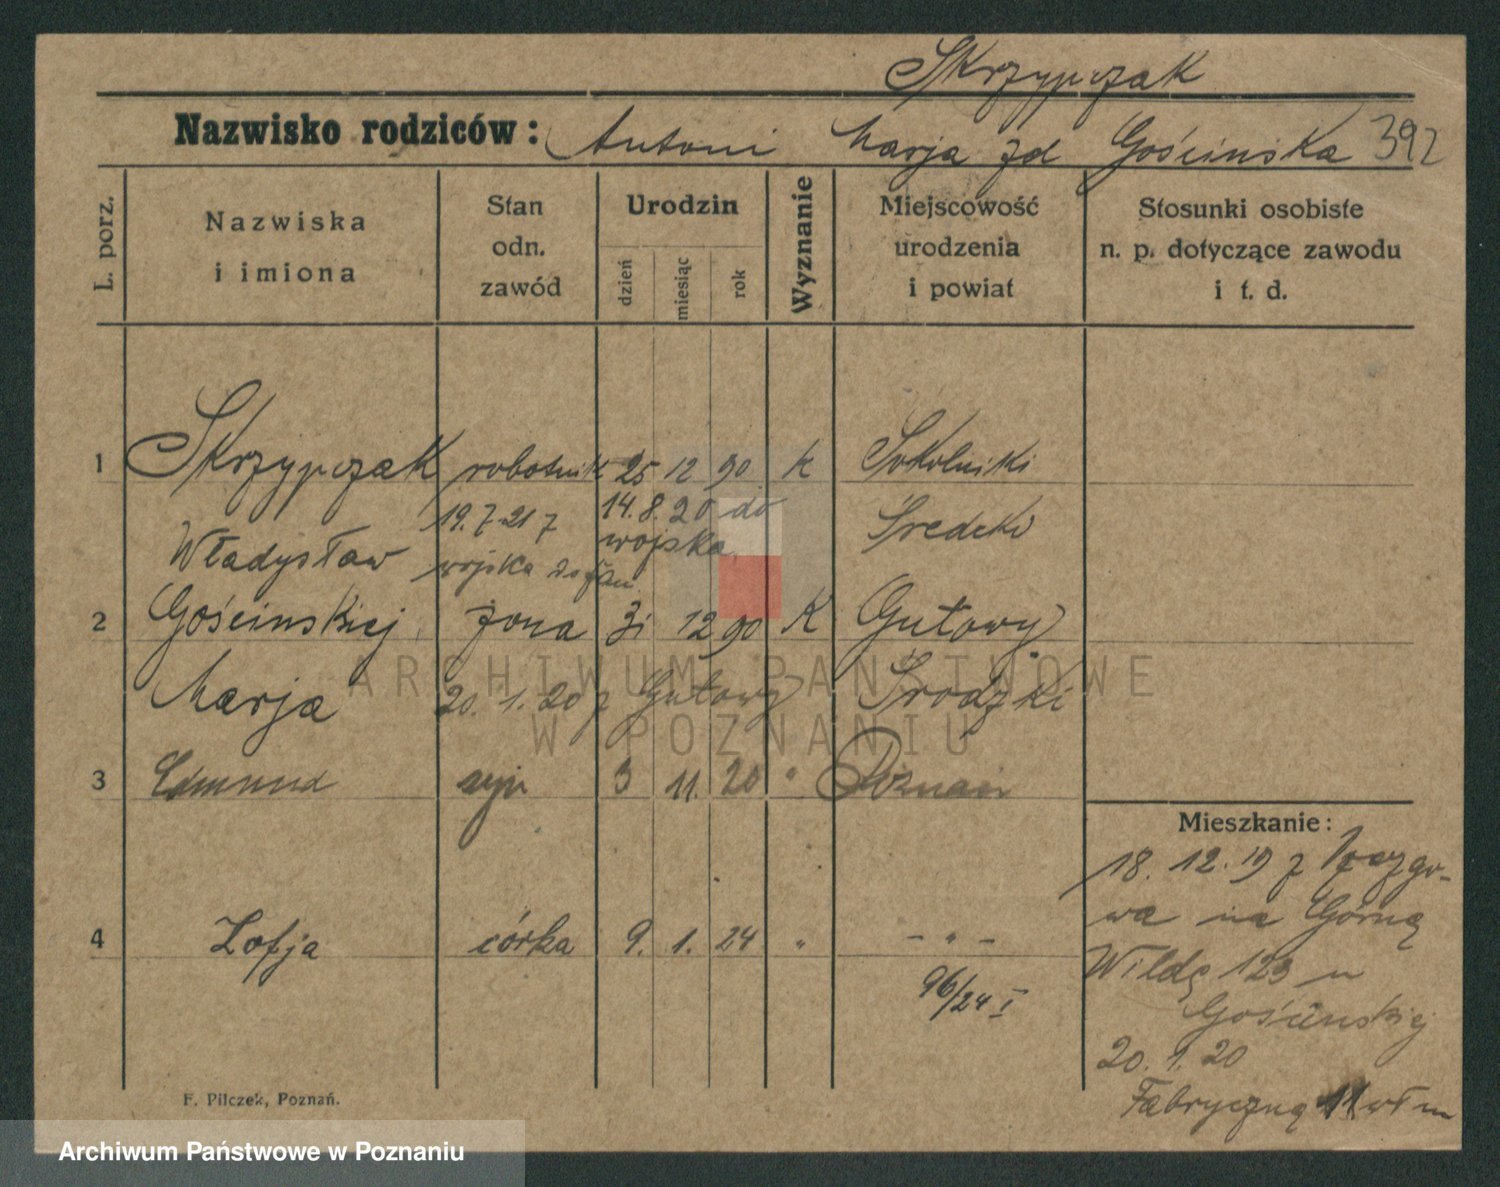 Skrzypczak
Nazwisko rodziców: Antoni Marja zd Gościnska 392
L. porz.
Nazwiska i imiona
Stan odn. zawód
Urodzin
dzień
miesiąc
rok
Wyznanie
Miejscowość urodzenia i powiat
Stosunki osobiste n. p. dotyczące zawodu i t. d.
1 Skrzypczak robotnik 25 12 90 k Sokolniki
19.7-21 z 14.8.20 do Średzki
Władysław wojska wojska
2 Gościnskiej żona 31 12 90 K Gułowy
Marja 20.1.20 z Gułowy Średzki
3 Edmund syn 3 11. 20 " Poznań
Mieszkanie:
18.12.19 z
wa na Górną
4 Zofja córka 9. 1. 24 " - " -
Wildę 123 u
96/24 I
Gościnskiej
20.1.20
Fabryczną 11 wł m
F. Pilczek, Poznań.
ARCHIWUM PAŃSTWOWE
W POZNANIU
Archiwum Państwowe w Poznaniu